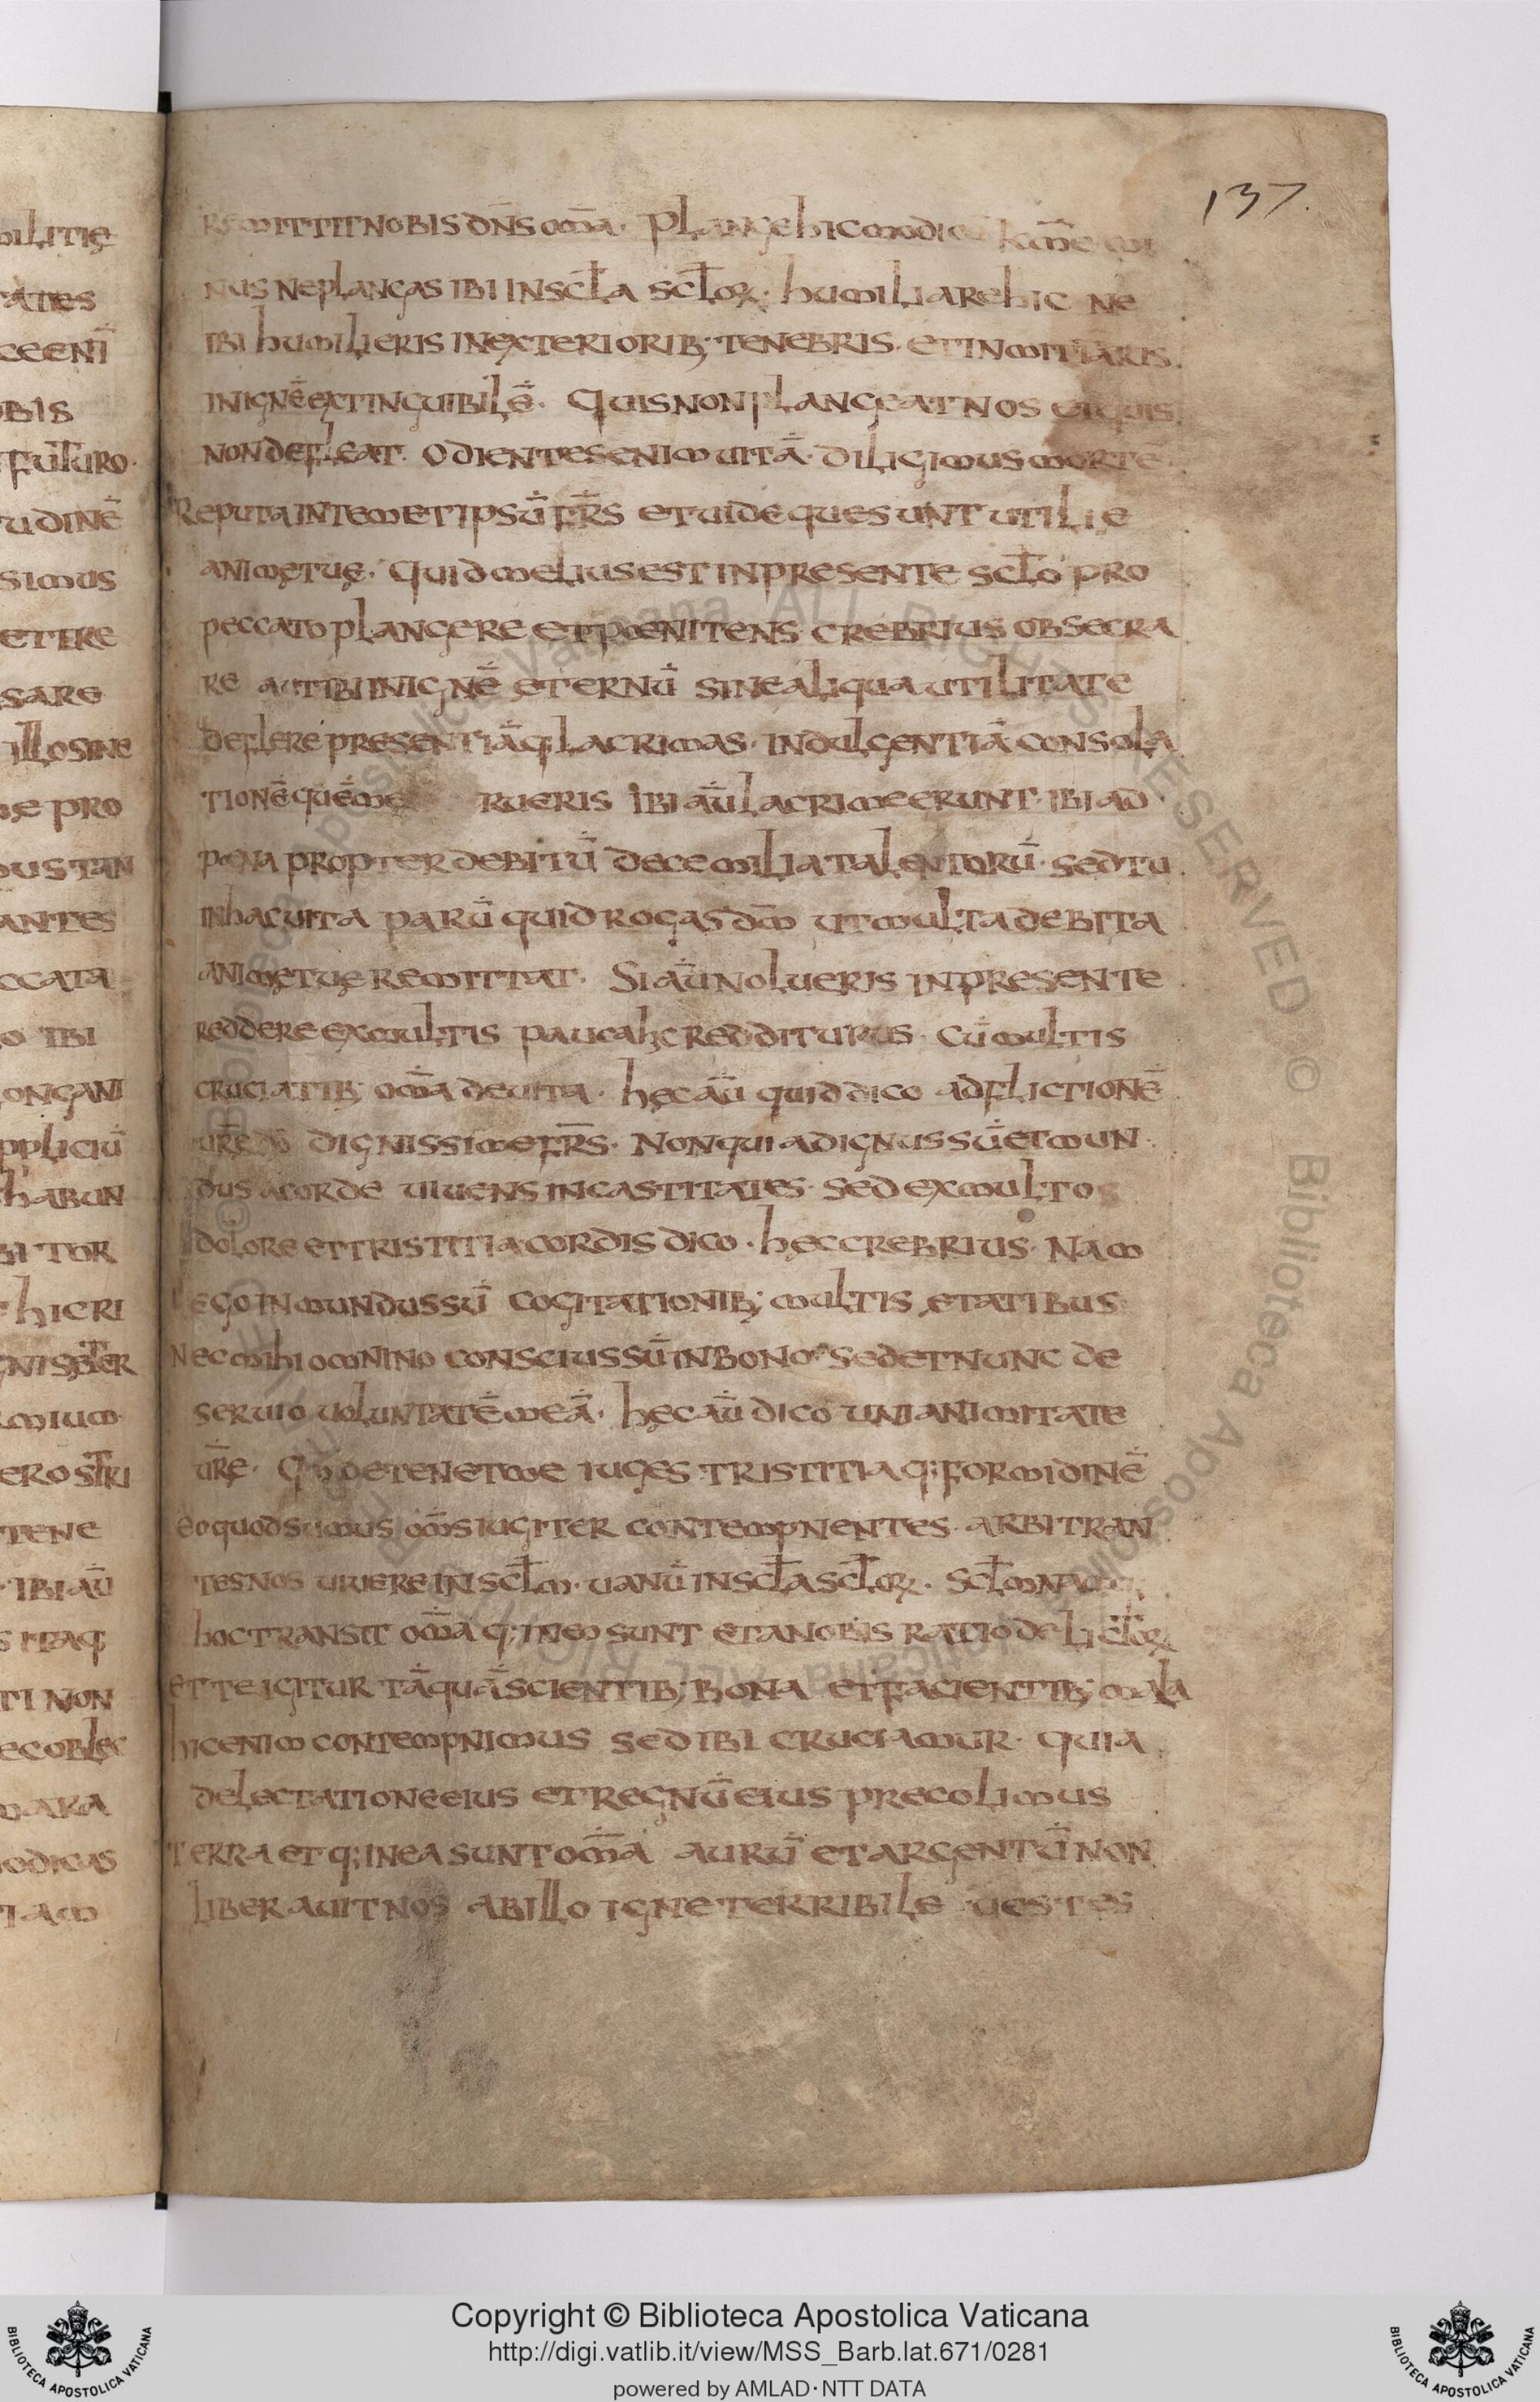 137.
REMITTIT NOBIS DN̄S OM̄A· PLANGE HIC MODICU
NUS NE PLANGAS IBI IN SCL̄A SCL̄OR̄· HUMILIARE HIC NE
IBI HUMILIERIS IN EXTERIORIB; TENEBRIS· ET IN MITTARIS
IN IGNĒ EXTINGUIBILĒ· QUIS NON PLANGEAT NOS ET QUIS
NON DEFLEAT· ODIENTES ENIM UITĀ· DILIGIMUS MORTĒ
REPUTA IN TEMET IPSŪ FR̄S ET UIDE QUE SUNT UTILIE
ANIMĘ TUĘ· QUID MELIUS EST IN PRESENTE SCL̄O PRO
PECCATO PLANGERE ET POENITENS CREBRIUS OBSECRA
RE AUT IBI IN IGNĒ ĘTERNŪ SINE ALIQUA UTILITATE
DEFLERE PRESENTIĀ Q; LACRIMAS· INDULGENTIĀ CONSOLA
TIONĒ QUĒ ME RUERIS IBI AŪ LACRIME ERUNT· IBI AD
POENA PROPTER DEBITŪ DECE MILIA TALENTORŪ· SED TU
IN HAC UITA PARŪ QUID ROGAS DM̄ UT MULTA DEBITA
ANIMĘ TUĘ REMITTAT· SI AŪ NOLUERIS IN PRESENTE
REDDERE EX MULTIS PAUCA HC REDDITURUS· CŪ MULTIS
CRUCIATIB; OM̄A DEUITA· HĘC AŪ QUID DICO ADFLICTIONĒ
DIGNISSIME FR̄S· NON QUIA DIGNUS SŪ ET MUN
DUS A CORDE UIUENS IN CASTITATES· SED EX MULTOS
DOLORE ET TRISTITIA CORDIS DICO· HĘC CREBRIUS· NAM
EGO INMUNDUS SŪ COGITATIONIB; MULTIS ĘTATIBUS
NEC MIHI OMNINO CONSCIUS SŪ IN BONO· SED ET NUNC DE
SERUIO UOLUNTATĒ MEĀ· HĘC AŪ DICO UNIANIMITATE
UR̄Ę· DETENET ME IUGES TRISTITIA Q; FORMIDINĒ
EO QUOD SUMUS OM̄S IUGITER CONTEMPNENTES· ARBITRAN
TES NOS UIUERE IN SCL̄M· UANŪ IN SCL̄A SCL̄OR̄· SCL̄M
HOC TRANSIT OM̄A Q; IN EO SUNT ET A NOBIS RATIO DELICTOR̄
ET TE IGITUR TĀQUĀ SCIENTIB; BONA ET FACIENTIB; MALA
HIC ENIM CONTEMPNIMUS SED IBI CRUCIAMUR· QUIA
DELECTATIONE EIUS ET REGNŪ EIUS PRECOLIMUS
TERRA ET Q; IN EA SUNT OM̄A AURŪ ET ARGENTŪ NON
LIBERAUIT NOS AB ILLO IGNE TERRIBILE UESTES
Copyright © Biblioteca Apostolica Vaticana
http://digi.vatlib.it/view/MSS_Barb.lat.671/0281
powered by AMLAD·NTT DATA